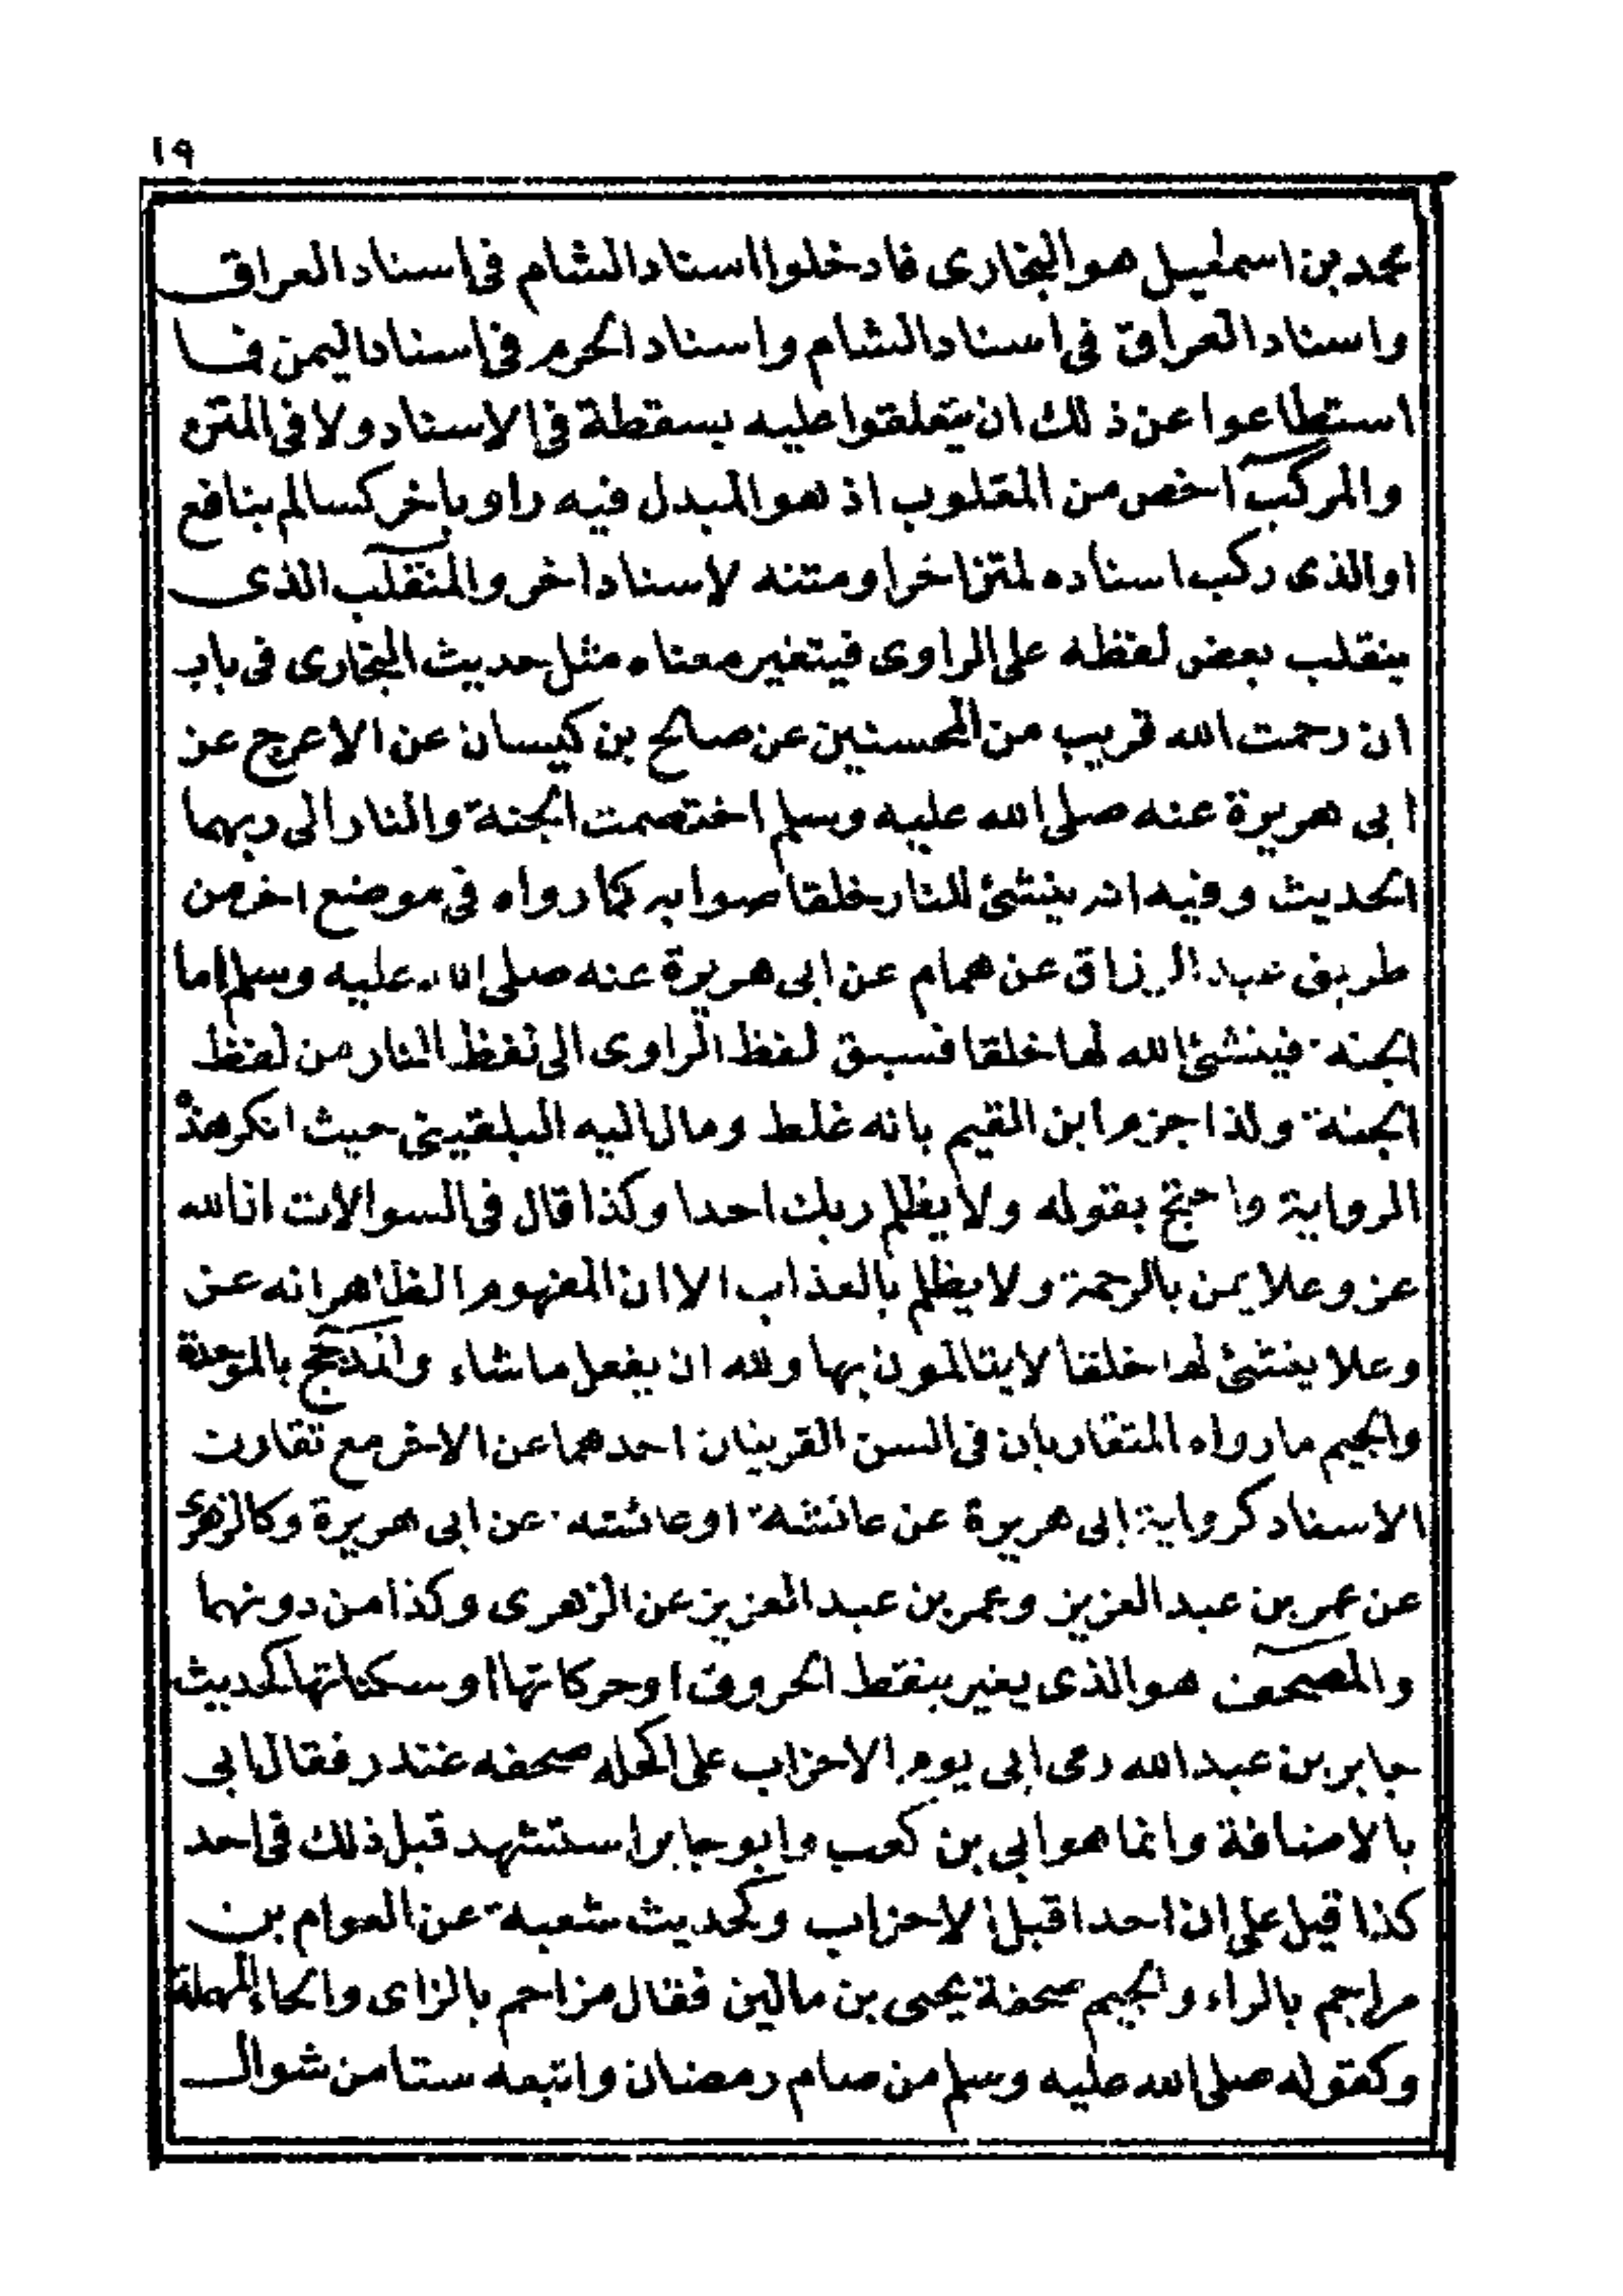 ١٩
محمد بن اسمعيل هو البخارى فادخلوا اسناد الشام فى اسناد العراق
واسناد العراق فى اسناد الشام واسناد الحرم فى اسناد اليمن فما
استطاعوا عن ذلك ان يتعلقوا عليه بسقطة فى الاسناد ولا فى المتن
والمركب اخص من المقلوب اذ هو المبدل فيه راو باخر كسالم بنافع
او الذى ركب اسناده لمتن اخر او متنه لاسناد اخر والمنقلب الذى
ينقلب بعض لفظه على الراوى فيتغير معناه مثل حديث البخارى فى باب
ان رحمت الله قريب من المحسنين عن صالح بن كيسان عن الاعرج عن
ابى هريرة عنه صلى الله عليه وسلم اختصمت الجنة والنار الى ربهما
الحديث وفيه انه ينشئ للنار خلقا صوابه كما رواه فى موضع اخر من
طريق عبد الرزاق عن همام عن ابى هريرة عنه صلى الله عليه وسلم اما
الجنة فينشئ الله لها خلقا فسبق لفظ الراوى الى لفظ النار من لفظ
الجنة ولذا جزم ابن القيم بانه غلط ومال اليه البلقينى حيث انكر هذه
الرواية واحتج بقوله ولا يظلم ربك احدا وكذا قال فى السوالات ان الله
عز وعلا يمن بالرحمة ولا يظلم بالعذاب الا ان المفهوم الظاهر انه عز
وعلا ينشئ لها خلقا لا يتالمون بها ولله ان يفعل ما شاء والمدبج بالموحدة
والجيم ما رواه المتقاربان فى السن القرينان احدهما عن الاخر مع تقارب
الاسناد كرواية ابى هريرة عن عائشة او عائشة عن ابى هريرة وكالزهرى
عن عمر بن عبد العزيز وعمر بن عبد العزيز عن الزهرى وكذا من دونهما
والمصحف هو الذى يغير بنقط الحروف او حركاتها او سكناتها كحديث
جابر بن عبد الله رمى ابى يوم الاحزاب على اكحله صحفه غندر فقال ابى
بالاضافة وانما هو ابى بن كعب وابو جابر استشهد قبل ذلك فى احد
كذا قيل على ان احدا قبل الاحزاب وكحديث شعبة عن العوام بن
مراجم بالراء والجيم صحفة يحيى بن مالين فقال مزاحم بالزاى والحاء المهملة
وكقوله صلى الله عليه وسلم من صام رمضان واتبعه ستا من شوال